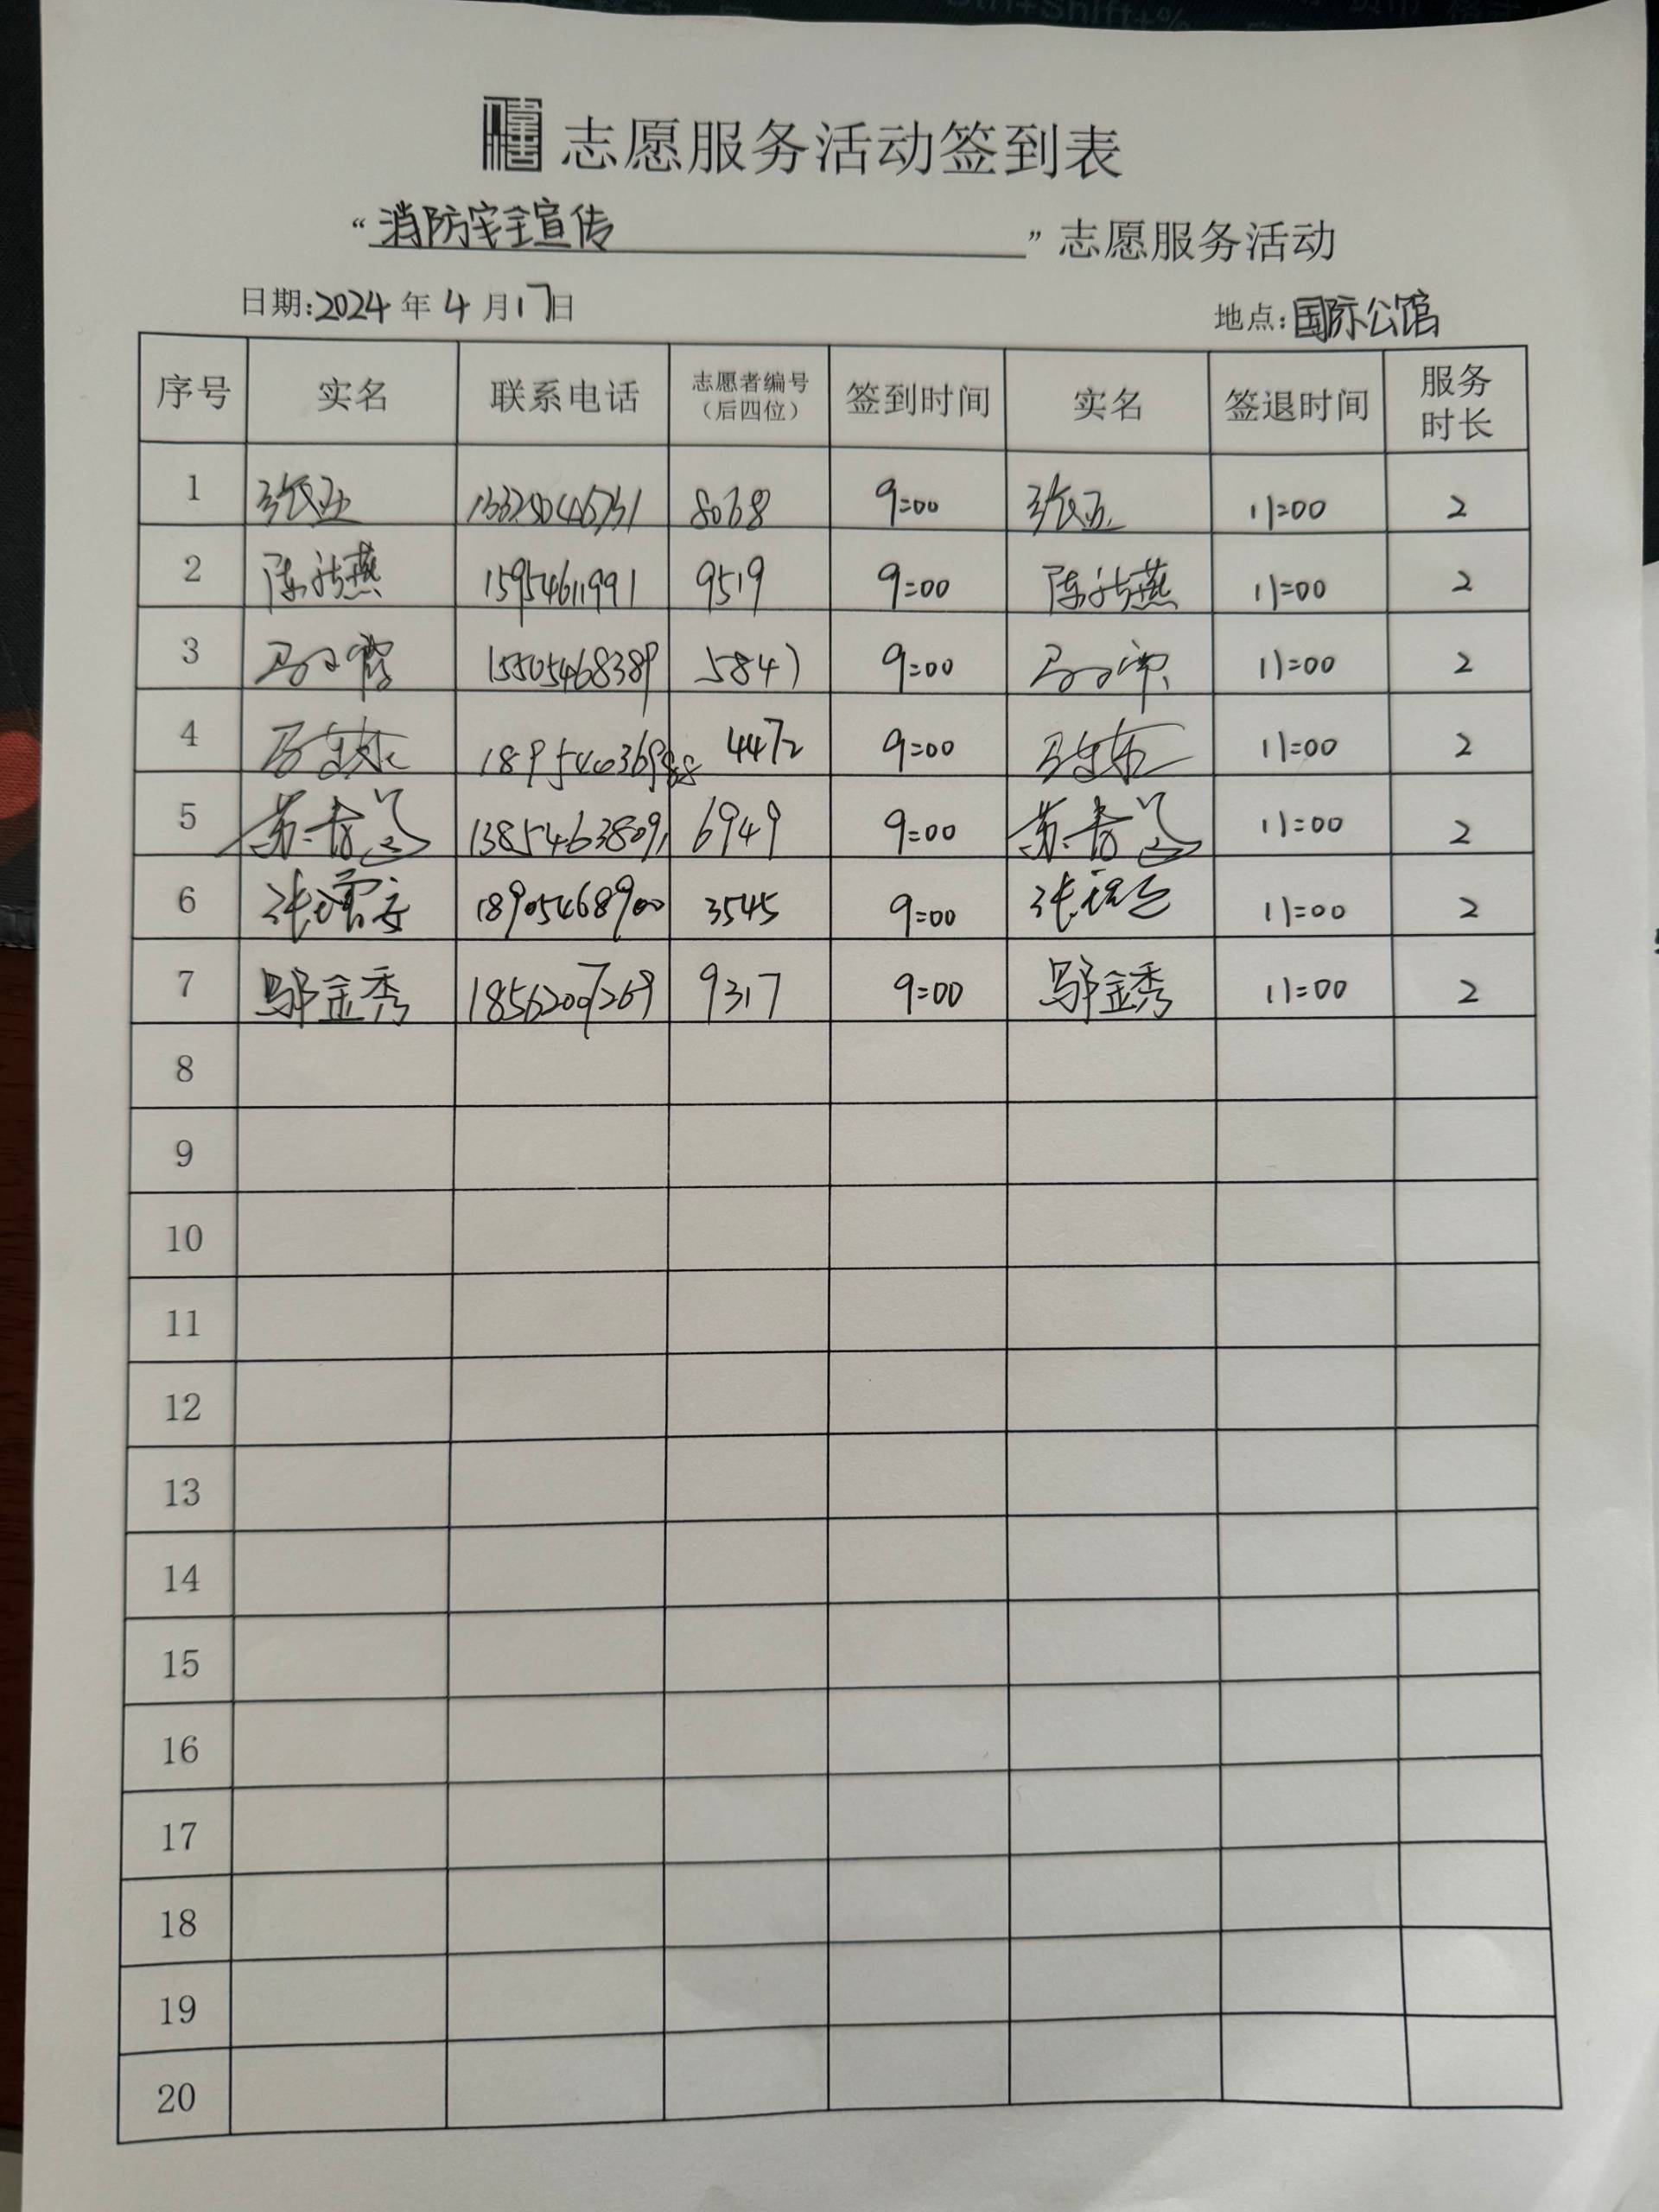 志愿服务活动签到表
“消防安全宣传”志愿服务活动
日期:2024年4月17日 地点:国际公馆
序号 实名 联系电话 志愿者编号（后四位） 签到时间 实名 签退时间 服务时长
1 8068 9:00 11:00 2
2 15954611991 9519 9:00 11:00 2
3 15505468389 5847 9:00 11:00 2
4 4472 9:00 11:00 2
5 13854638091 6949 9:00 11:00 2
6 18905468900 3545 9:00 11:00 2
7 邬金秀 18562007269 9317 9:00 邬金秀 11:00 2
8
9
10
11
12
13
14
15
16
17
18
19
20